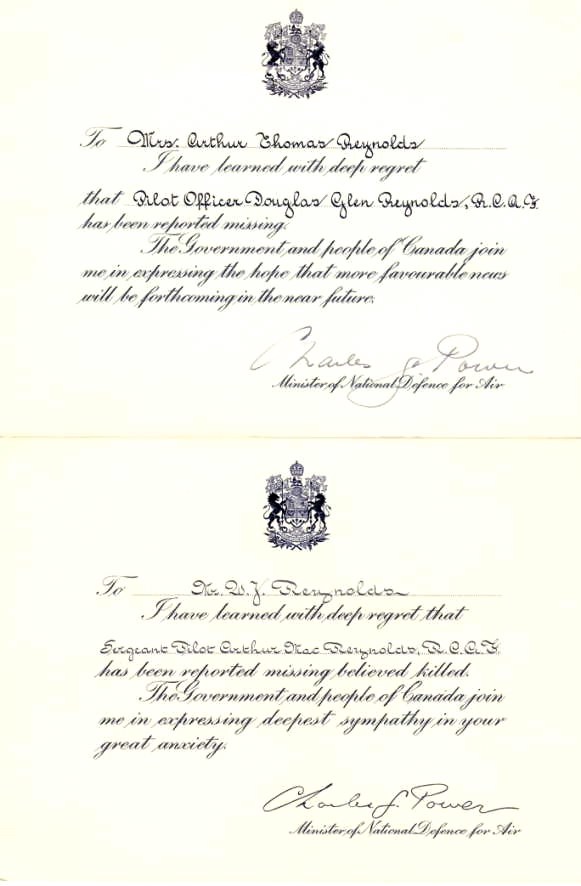 To Mrs. Arthur Thomas Reynolds
I have learned with deep regret
that Pilot Officer Douglas Glen Reynolds, R.C.A.F.
has been reported missing.
The Government and people of Canada join
me in expressing the hope that more favourable news
will be forthcoming in the near future.
Charles G. Power
Minister of National Defence for Air
To Mr. W. J. Reynolds
I have learned with deep regret that
Sergeant Pilot Arthur Mac Reynolds, R.C.A.F.
has been reported missing believed killed.
The Government and people of Canada join
me in expressing deepest sympathy in your
great anxiety.
Charles G. Power
Minister of National Defence for Air